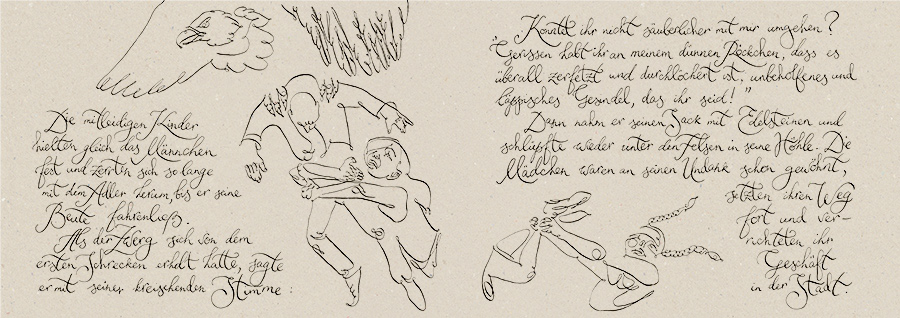 Die mitleidigen Kinder
hielten gleich das Männchen
fest und zerrten sich so lange
mit dem Adler herum, bis er seine
Beute fahrenließ.
Als der Zwerg sich von dem
ersten Schrecken erholt hatte, sagte
er mit seiner kreischenden Stimme:
Konntet ihr nicht säuberlicher mit mir umgehen?
"Gerissen habt ihr an meinem dünnen Röckchen, dass es
überall zerfetzt und durchlöchert ist, unbeholfenes und
läppisches Gesindel, das ihr seid!"
Dann nahm er seinen Sack mit Edelsteinen und
schlüpfte wieder unter den Felsen in seine Höhle. Die
Mädchen waren an seinen Undank schon gewöhnt,
setzten ihren Weg
fort und ver-
richteten ihr
Geschäft
in der Stadt.